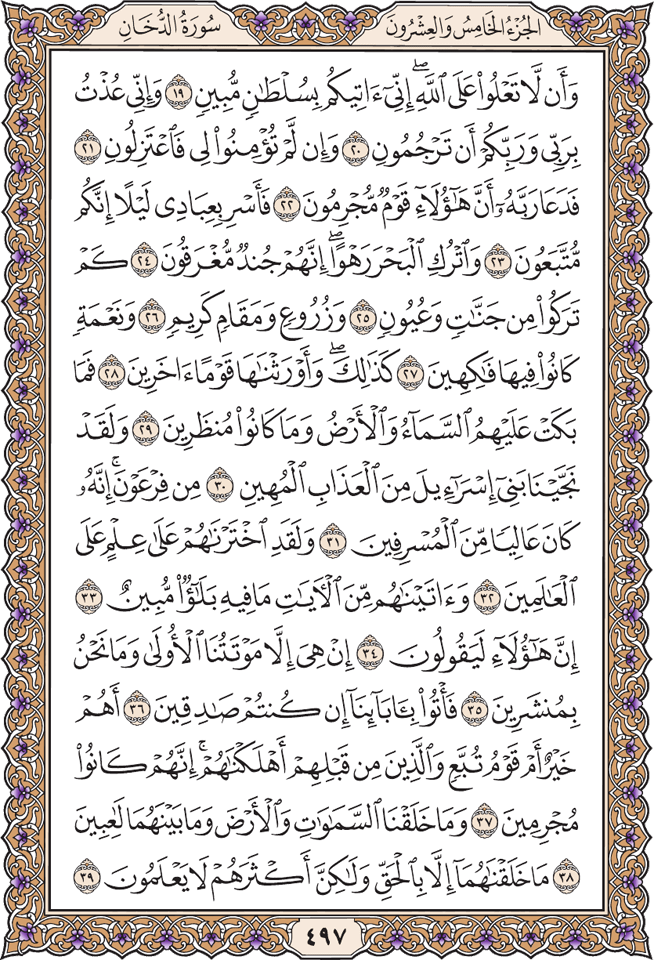 الجزء الخامس والعشرون
سورة الدخان
وَأَن لَّا تَعْلُوا۟ عَلَى ٱللَّهِ ۖ إِنِّىٓ ءَاتِيكُم بِسُلْطَـٰنٍ مُّبِينٍ ١٩ وَإِنِّى عُذْتُ
بِرَبِّى وَرَبِّكُمْ أَن تَرْجُمُونِ ٢٠ وَإِن لَّمْ تُؤْمِنُوا۟ لِى فَٱعْتَزِلُونِ ٢١
فَدَعَا رَبَّهُۥٓ أَنَّ هَـٰٓؤُلَآءِ قَوْمٌ مُّجْرِمُونَ ٢٢ فَأَسْرِ بِعِبَادِى لَيْلًا إِنَّكُم
مُّتَّبَعُونَ ٢٣ وَٱتْرُكِ ٱلْبَحْرَ رَهْوًا ۖ إِنَّهُمْ جُندٌ مُّغْرَقُونَ ٢٤ كَمْ
تَرَكُوا۟ مِن جَنَّـٰتٍ وَعُيُونٍ ٢٥ وَزُرُوعٍ وَمَقَامٍ كَرِيمٍ ٢٦ وَنَعْمَةٍ
كَانُوا۟ فِيهَا فَـٰكِهِينَ ٢٧ كَذَٰلِكَ ۖ وَأَوْرَثْنَـٰهَا قَوْمًا ءَاخَرِينَ ٢٨ فَمَا
بَكَتْ عَلَيْهِمُ ٱلسَّمَآءُ وَٱلْأَرْضُ وَمَا كَانُوا۟ مُنظَرِينَ ٢٩ وَلَقَدْ
نَجَّيْنَا بَنِىٓ إِسْرَٰٓءِيلَ مِنَ ٱلْعَذَابِ ٱلْمُهِينِ ٣٠ مِن فِرْعَوْنَ ۚ إِنَّهُۥ
كَانَ عَالِيًا مِّنَ ٱلْمُسْرِفِينَ ٣١ وَلَقَدِ ٱخْتَرْنَـٰهُمْ عَلَىٰ عِلْمٍ عَلَى
ٱلْعَـٰلَمِينَ ٣٢ وَءَاتَيْنَـٰهُم مِّنَ ٱلْـَٔايَـٰتِ مَا فِيهِ بَلَـٰٓؤٌا۟ مُّبِينٌ ٣٣
إِنَّ هَـٰٓؤُلَآءِ لَيَقُولُونَ ٣٤ إِنْ هِىَ إِلَّا مَوْتَتُنَا ٱلْأُولَىٰ وَمَا نَحْنُ
بِمُنشَرِينَ ٣٥ فَأْتُوا۟ بِـَٔابَآئِنَآ إِن كُنتُمْ صَـٰدِقِينَ ٣٦ أَهُمْ
خَيْرٌ أَمْ قَوْمُ تُبَّعٍ وَٱلَّذِينَ مِن قَبْلِهِمْ ۚ أَهْلَكْنَـٰهُمْ ۖ إِنَّهُمْ كَانُوا۟
مُجْرِمِينَ ٣٧ وَمَا خَلَقْنَا ٱلسَّمَـٰوَٰتِ وَٱلْأَرْضَ وَمَا بَيْنَهُمَا لَـٰعِبِينَ
٣٨ مَا خَلَقْنَـٰهُمَآ إِلَّا بِٱلْحَقِّ وَلَـٰكِنَّ أَكْثَرَهُمْ لَا يَعْلَمُونَ ٣٩
٤٩٧